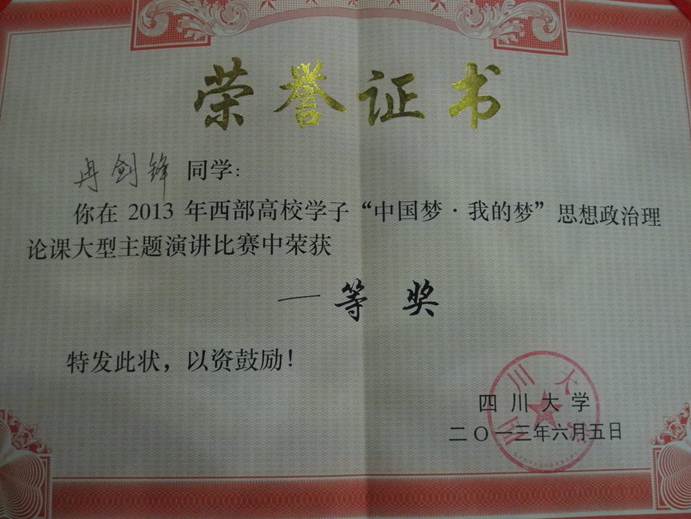 荣誉证书
冉剑锋 同学：
你在 2013 年西部高校学子“中国梦·我的梦”思想政治理
论课大型主题演讲比赛中荣获
一等奖
特发此状，以资鼓励！
四川大学
四川大学
二〇一三年六月五日